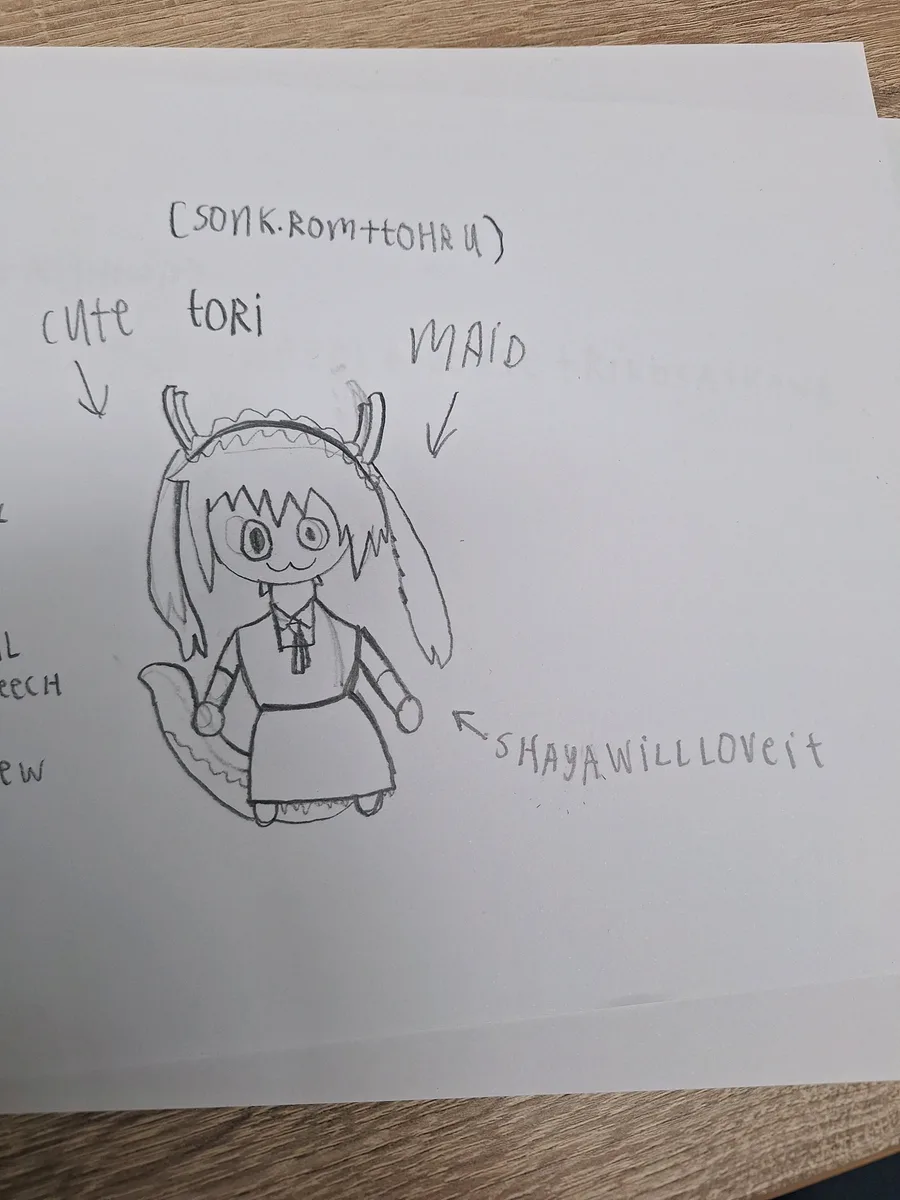 (SONK.ROM+tOHRU)
cute
tORi
MAID
L
IL
eeCH
ew
SHAYAWiLLLOVeit